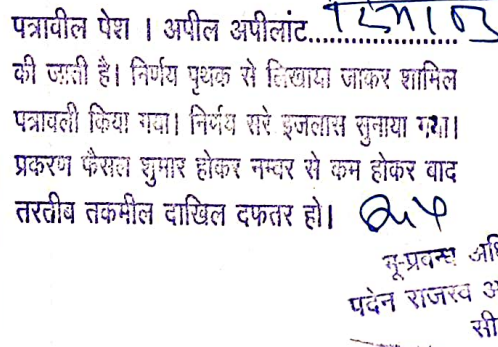 पत्रावील पेश । अपील अपीलांट..................
की जाती है। निर्णय पृथक से लिखाया जाकर शामिल
पत्रावली किया गया। निर्णय सरे इजलास सुनाया गया।
प्रकरण फैसल शुमार होकर नम्बर से कम होकर वाद
तरतीब तकमील दाखिल दफतर हो।
भू-प्रवन्ध अधि
पदेन राजस्व अ
सी